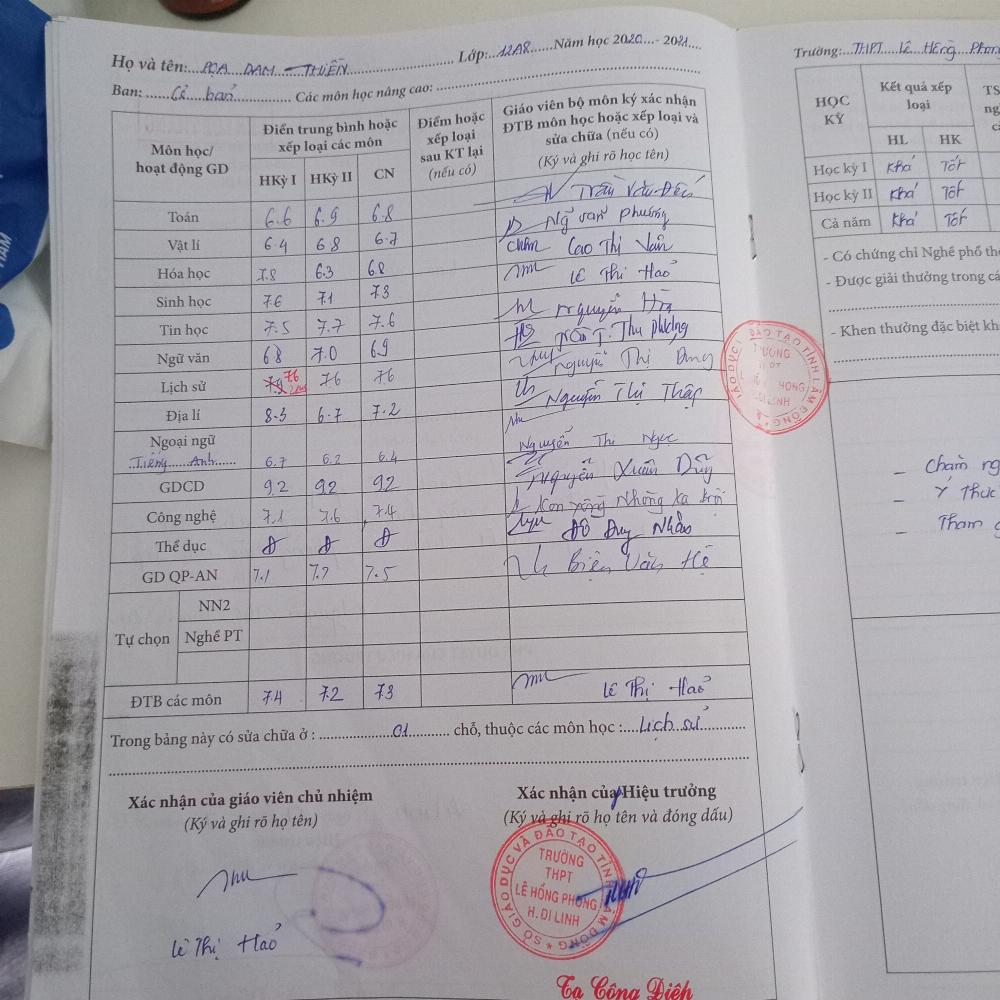 Họ và tên: PỌA DAM - THUYỀN Lớp: 12A8 Năm học 2020 - 2021
Ban: Cơ bản Các môn học nâng cao:
Môn học/ hoạt động GD
Điển trung bình hoặc xếp loại các môn
HKỳ I HKỳ II CN
Điểm hoặc xếp loại sau KT lại (nếu có)
Giáo viên bộ môn ký xác nhận ĐTB môn học hoặc xếp loại và sửa chữa (nếu có)
(Ký và ghi rõ học tên)
Toán 6.6 6.9 6.8 Trần Văn
Vật lí 6.4 6.8 6.7 Ngô Văn Phường
Hóa học 7.8 6.3 6.8 Cao Thị Vân
Sinh học 7.6 7.1 7.3 Lê Thị Hảo
Tin học 7.5 7.7 7.6 Nguyễn
Ngữ văn 6.8 7.0 6.9 T. Thu Phương
Lịch sử 7.6 7.6 7.6 Nguyễn Thị Dung
Địa lí 8.3 6.7 7.2 Nguyễn Thị Thập
Ngoại ngữ
Tiếng Anh 6.7 6.2 6.4 Nguyễn Thị Ngọc
GDCD 9.2 9.2 9.2 Nguyễn Xuân Dũng
Công nghệ 7.1 7.6 7.4
Thể dục Đ Đ Đ Đỗ Duy Nhẫn
GD QP-AN 7.1 7.7 7.5 Biện Văn Hệ
Tự chọn
NN2
Nghề PT
ĐTB các môn 7.4 7.2 7.3 Lê Thị Hảo
Trong bảng này có sửa chữa ở : 01 chỗ, thuộc các môn học : Lịch sử
Xác nhận của giáo viên chủ nhiệm
(Ký và ghi rõ họ tên)
Lê Thị Hảo
Xác nhận của Hiệu trưởng
(Ký và ghi rõ họ tên và đóng dấu)
SỞ GIÁO DỤC VÀ ĐÀO TẠO TỈNH LÂM ĐỒNG
TRƯỜNG
THPT
LÊ HỒNG PHONG
H. DI LINH
Tạ Công Điệh
Trường: THPT Lê Hồng Phong
HỌC KỲ
Kết quả xếp loại
HL HK
Học kỳ I Khá Tốt
Học kỳ II Khá Tốt
Cả năm Khá Tốt
- Có chứng chỉ Nghề phổ
- Được giải thưởng trong
- Khen thưởng đặc biệt
- Chăm
- Ý thức
- Tham